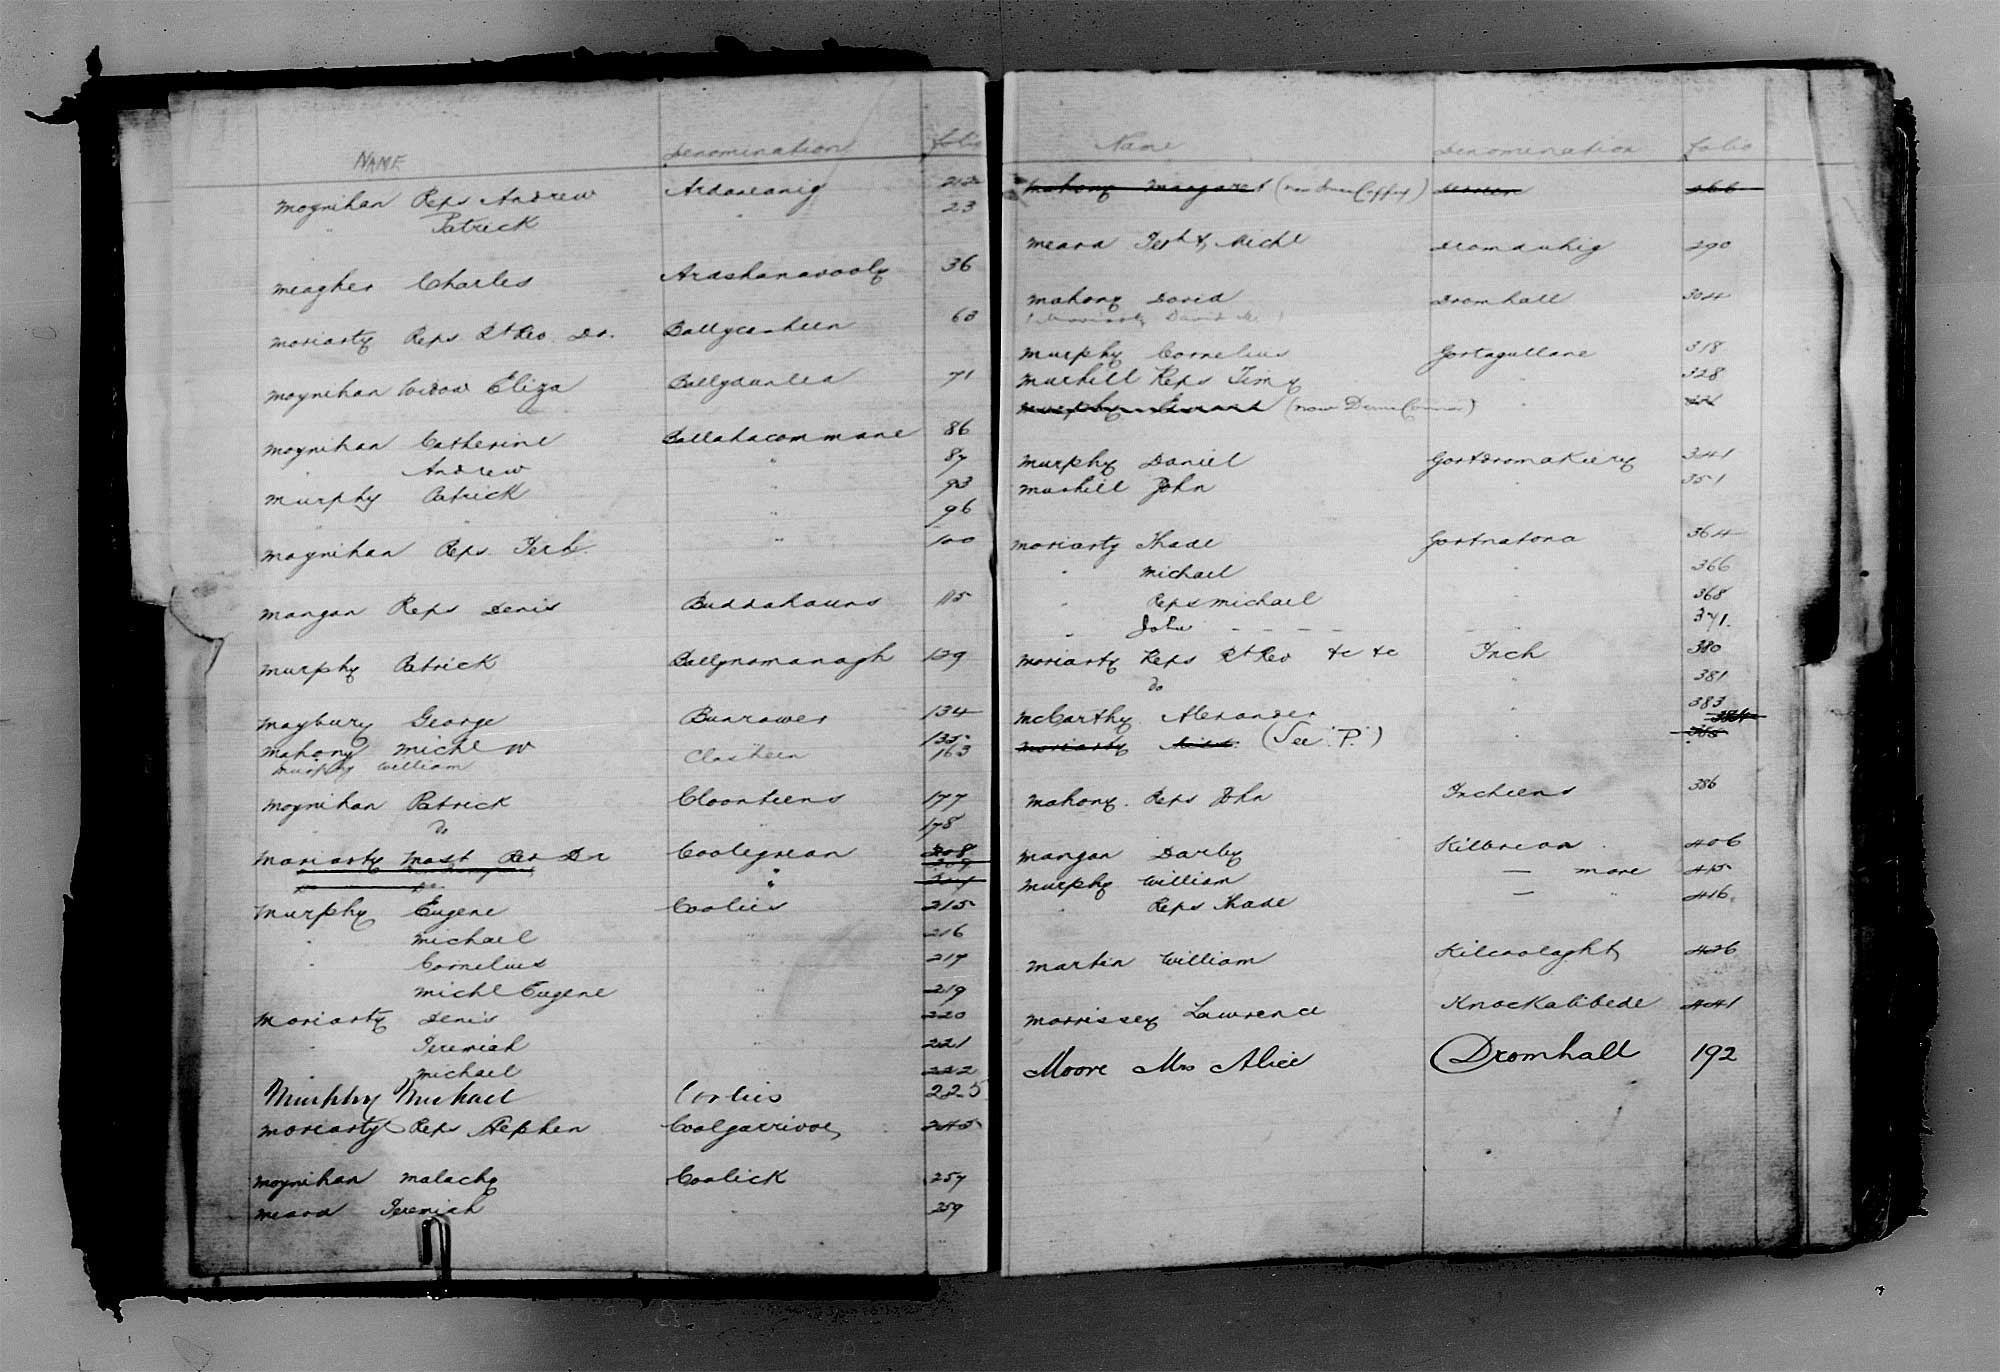 NAME Denomination folio
Moynihan Reps Andrew Ardaneanig 22
" Patrick " 23
Meagher Charles Ardshanavooly 36
Moriarty Reps Rt Rev. Dr. Ballycasheen 63
Moynihan Widow Eliza Ballydunlea 71
Moynihan Catherine Ballahacommane 86
" Andrew " 87
Murphy Patrick " 93
" " " 96
Moynihan Reps. " 100
Mangan Reps Denis 115
Murphy Patrick Ballynamanagh 129
Maybury George Bunrower 134
Mahony Michl W 135
Murphy William Clasheen 163
Moynihan Patrick Cloonteens 177
" do " 178
Moriarty Most Rev Dr Coolegrean 208
" 209
"
Murphy Eugene Coolies 215
" Michael " 216
" Cornelius " 217
Michl Eugene " 219
Moriarty Denis " 220
" Jeremiah " 221
" Michael 222
Murphy Michael Coolies 225
Moriarty Reps Stephen Coolgarrivoe, 245
Moynihan Malachy Coolick 257
Meara Jeremiah " 259
Name Denomination folio
Mahony Margaret (now Coffey) 266
Meara & Michl Dromduhig 290
Mahony David Dromhall 304
( David )
Murphy Cornelius Gortagullane 318
Murhill Reps Timy " 328
Murphy (now Connor) "
Murphy Daniel Gortdromakiery 341
Murhill John " 351
Moriarty Thade Gortnatona 364
" Michael " 366
" Reps Michael " 368
" John - - - - - - 371.
Moriarty Reps Rt Rev &c &c Inch 380
do " 381
McCarthy Alexander " 383
384
Moriarty (See "P.") " 385
Mahony. Reps John Incheens 386
Mangan Darby Kilbrean. 406
Murphy William — more 415
" Reps Thade — " 416.
Martin William Kilcoolaght, 426
Morrissey Lawrence Knockalibede 441
Moore Mrs Alice Dromhall 192